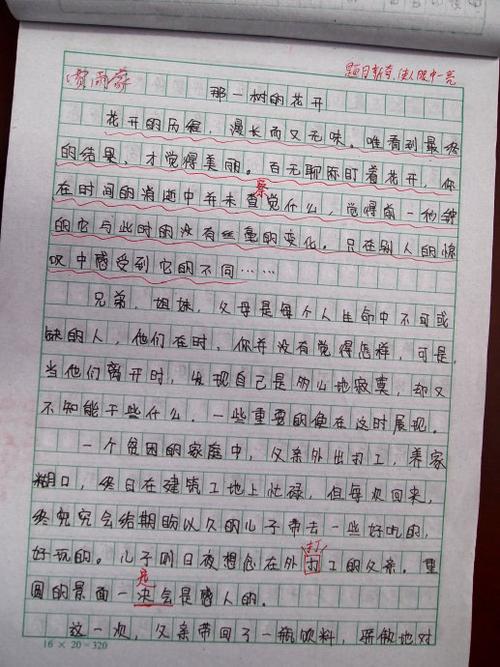 题目新奇,使人眼中一亮
那一树的花开
花开的历程，漫长而又无味。唯看到最终
的结果，才觉得美丽。百无聊际盯着花开，你
察
在时间的消逝中并未查觉什么，觉得前一秒钟
的它与此时的没有丝毫的变化。只在别人的惊
叹中感受到它的不同……
兄弟，姐妹，父母是每个人生命中不可或
缺的人，他们在时，你并没有觉得怎样，可是
当他们离开时，发现自己是多么地寂寞，却又
不知能干些什么，一些重要的便在这时展现。
一个贫困的家庭中，父亲外出打工，养家
糊口，终日在建筑工地上忙碌，但每次回来，
终究会给期盼以久的儿子带去一些好吃的，
打
好玩的。儿子则日夜想念在外打工的父亲。重
是
圆的景面一决会是感人的。
这一次，父亲带回了一瓶饮料，骄傲地对
16 × 20 = 320